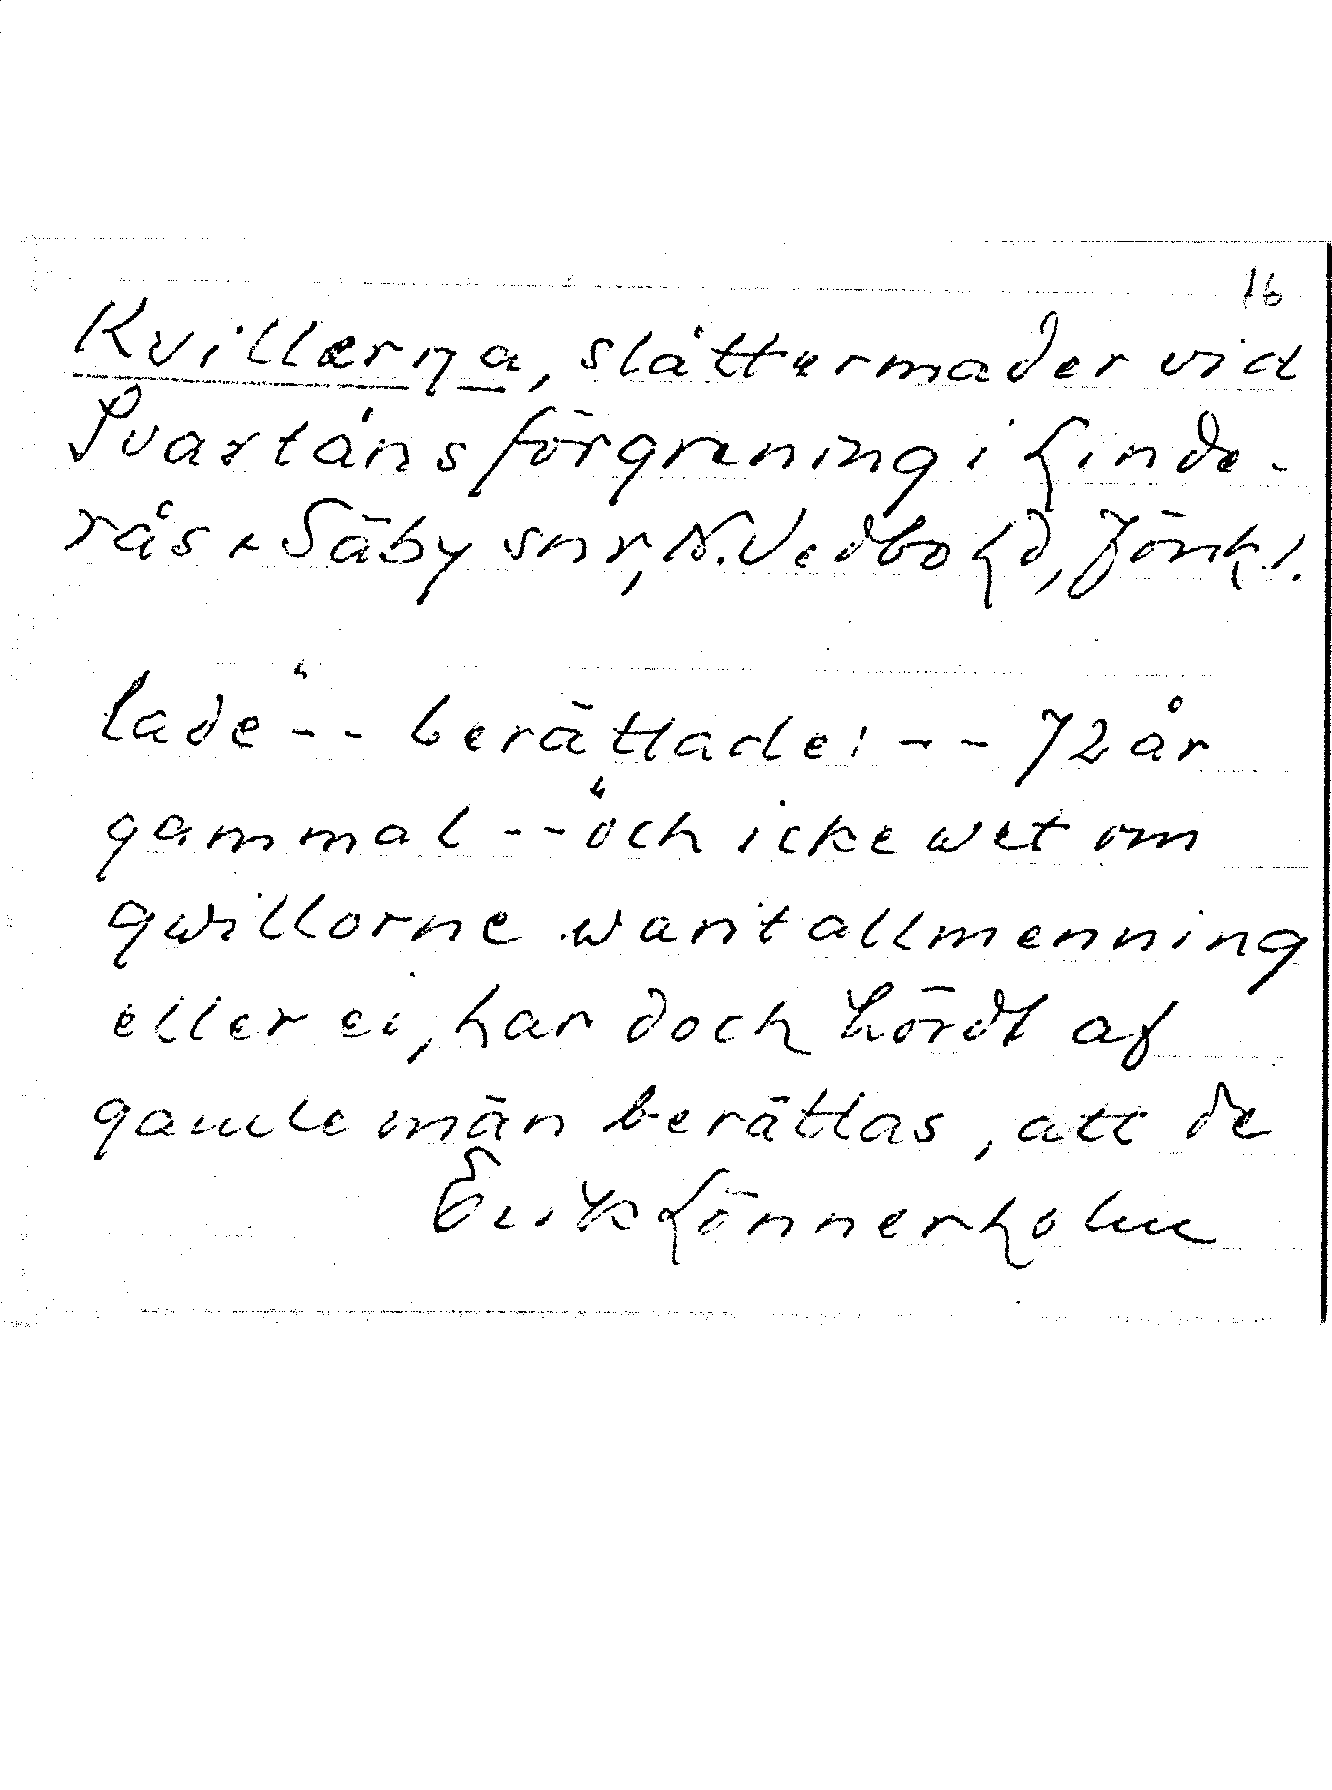 16
Kvillærna, slåttermader vid
Svartåns förgrening i Linde-
rås o Säby snr, N. Vedbo hd, Jönk l.
lade" -- berättade: -- 72 år
gammal -- "och icke wet om
qwillorne warit allmenning
eller ei, har doch hördt af
gamle män berättas, att de
Erik Lönnerholm